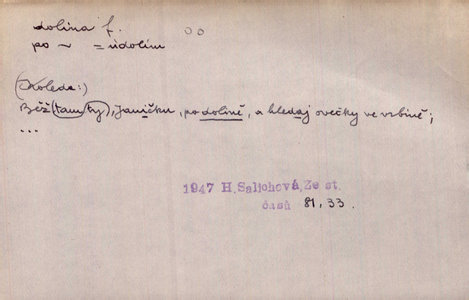 dolina f.
po ~ = údolím
(Koleda:)
Běž (tam ty), Janíčku, po dolině, a hledaj ovečky ve vrbině;
...
1947 H. Salichová, Ze st.
časů 81, 33.